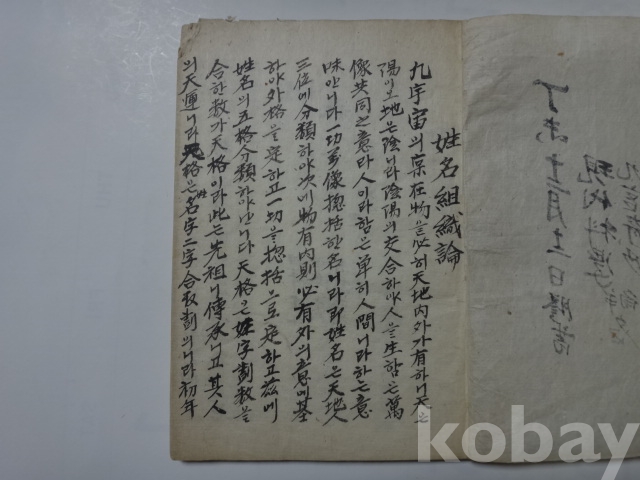 姓名組織論
九宇宙의 稟在物을 必히 天地內外가 有하니 天은
陽이오 地는 陰니라 陰陽의 交合하야 人을 生함은 萬
像共同之意라 人이라 함은 單히 人間니라 하는 意
味안니다 一切萬像揔括한 名니라 即 姓名은 天地人
三位에 分類하야 次에 有內則 必有外의 意에 基
하야 外格을 定하고 一切을 揔括으로 定하고 玆에
姓名의 五格分類하야난니다 天格은 姓字劃數을
合한 數가 天格이라 此는 先祖니 傳承니고 其人
의 天運니라 地格은 名字二字合數劃의니라 初年
丁未十二月十二日謄書
kobay